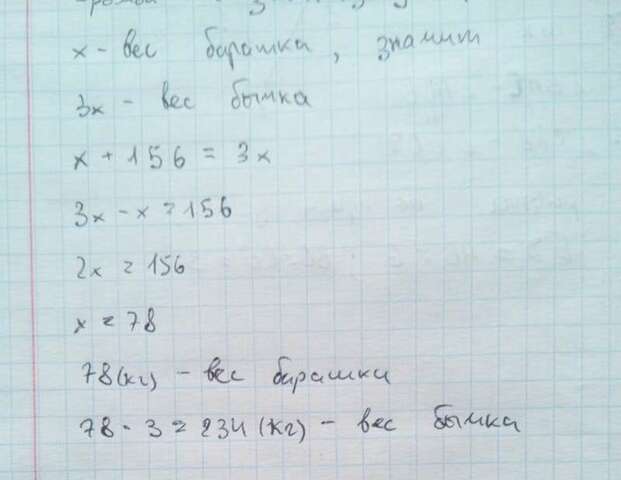 x - вес барашка, значит
3x - вес бычка
x + 156 = 3x
3x - x = 156
2x = 156
x = 78
78 (кг) - вес барашка
78 · 3 = 234 (кг) - вес бычка